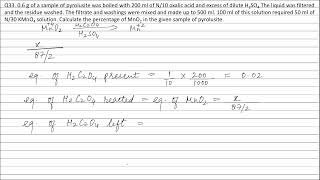 Q33. 0.6 g of a sample of pyrolusite was boiled with 200 ml of N/10 oxalic acid and excess of dilute H₂SO₄. The liquid was filtered
and the residue washed. The filtrate and washings were mixed and made up to 500 ml. 100 ml of this solution required 50 ml of
N/30 KMnO₄ solution. Calculate the percentage of MnO₂ in the given sample of pyrolusite
+4 H₂C₂O₄ +2
MnO₂ ⟶ Mn
H₂SO₄
x
87/2
eq. of H₂C₂O₄ present = 1/10 × 200/1000 = 0.02
eq. of H₂C₂O₄ reacted = eq. of MnO₂ = x
87/2
eq. of H₂C₂O₄ left =